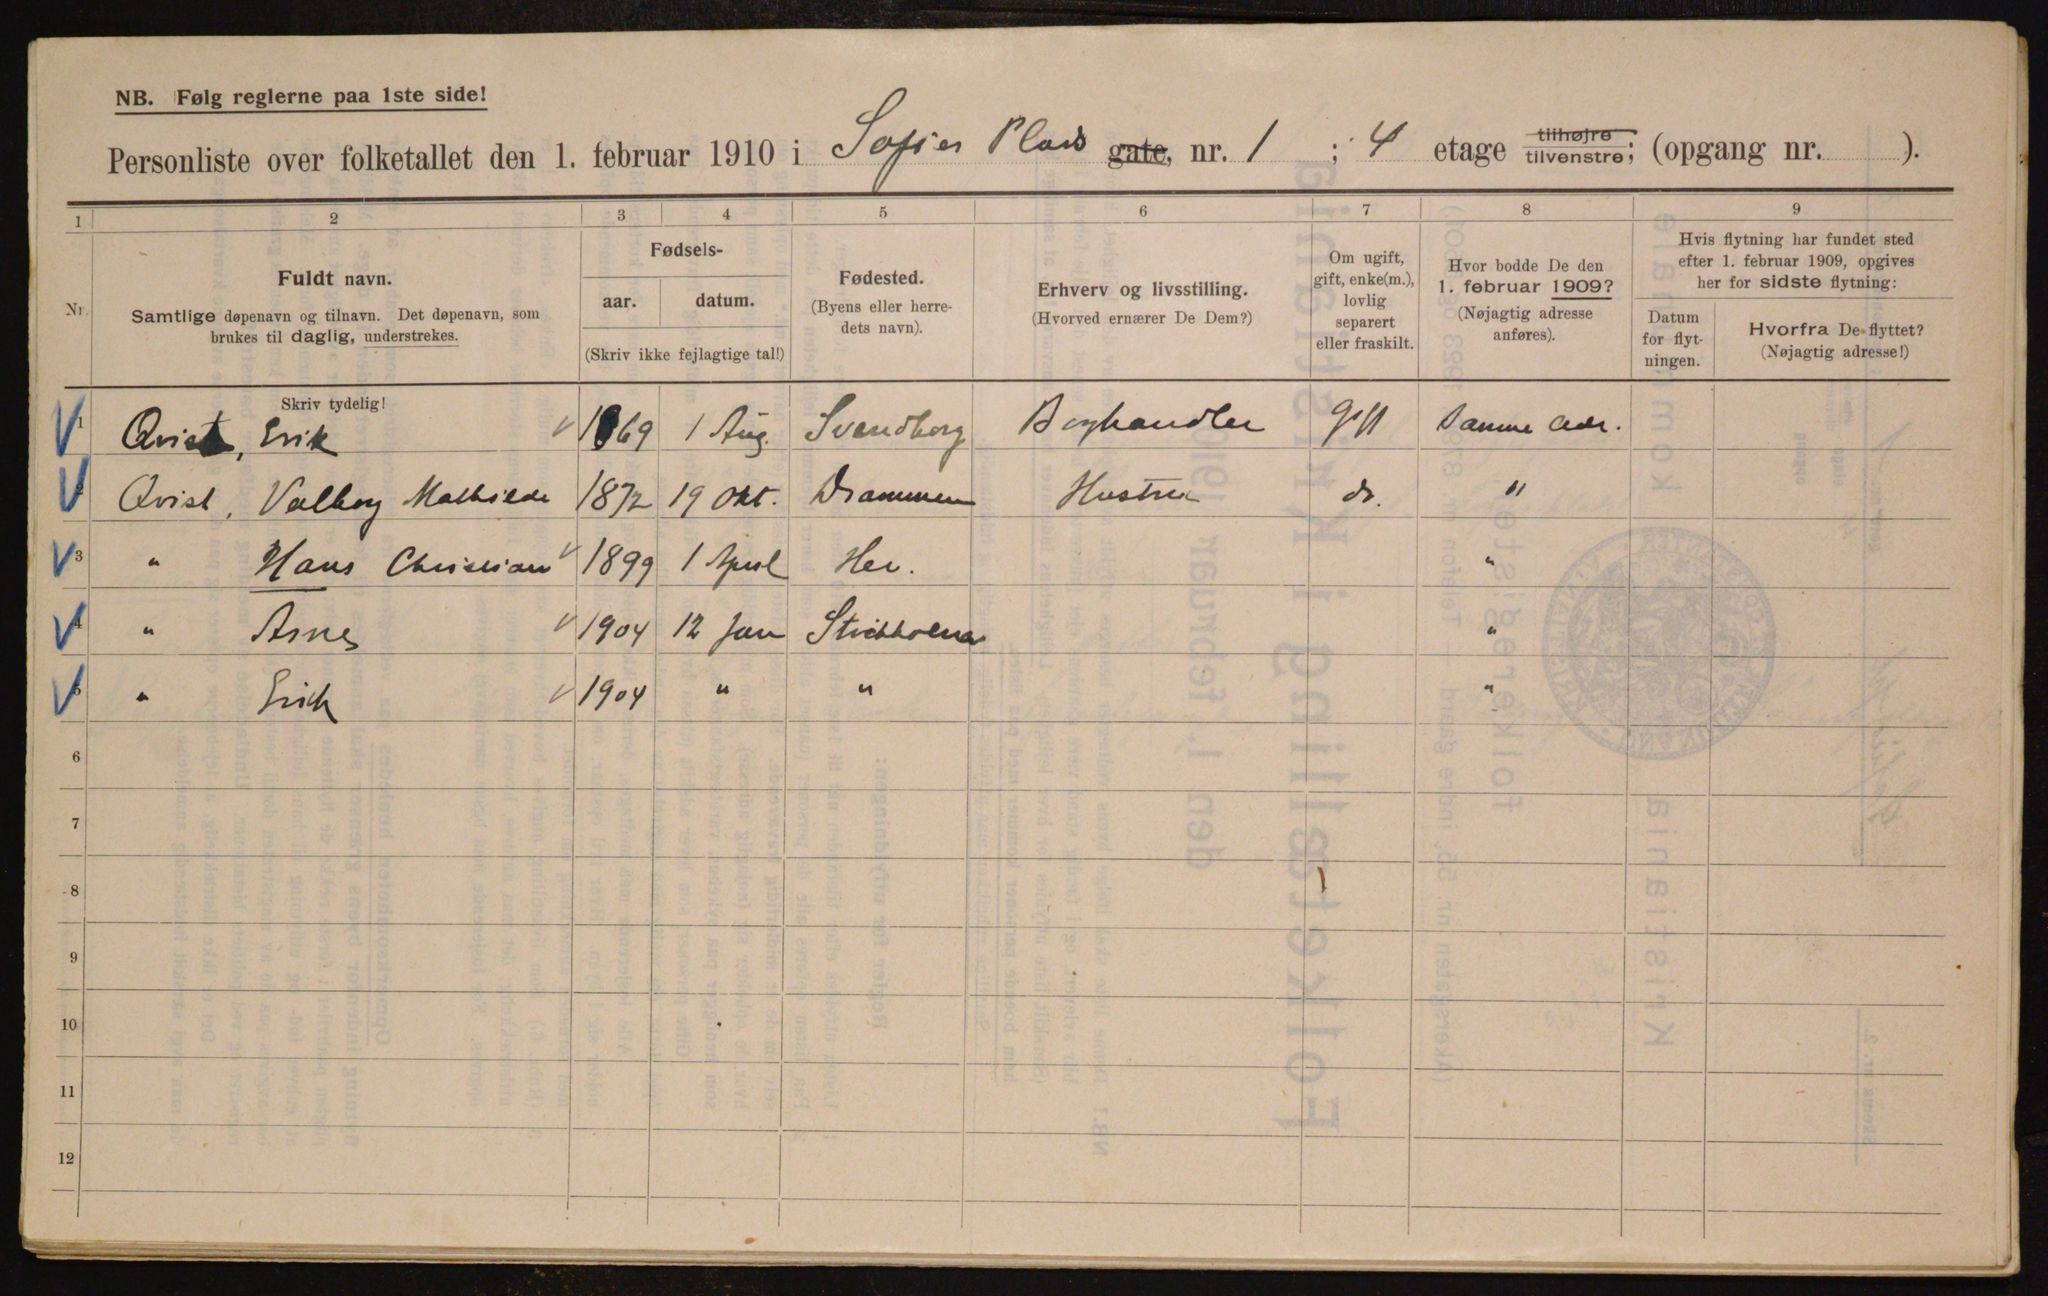 NB. Følg reglerne paa 1ste side!
Personliste over folketallet den 1. februar 1910 i Sofies Plads gate, nr. 1 ; 4 etage tilhøjre tilvenstre; (opgang nr. ).
1 2 3 4 5 6 7 8 9
Nr.
Fuldt navn.
Samtlige døpenavn og tilnavn. Det døpenavn, som
brukes til daglig, understrekes.
Skriv tydelig!
Fødsels-
aar. datum.
(Skriv ikke fejlagtige tal!)
Fødested.
(Byens eller herre-
dets navn).
Erhverv og livsstilling.
(Hvorved ernærer De Dem?)
Om ugift,
gift, enke(m.),
lovlig
separert
eller fraskilt.
Hvor bodde De den
1. februar 1909?
(Nøjagtig adresse
anføres).
Hvis flytning har fundet sted
efter 1. februar 1909, opgives
her for sidste flytning:
Datum
for flyt-
ningen.
Hvorfra De flyttet?
(Nøjagtig adresse!)
1 Qvist, Erik 1869 1 Aug. Svendborg Boghandler gift Samme adr.
2 Qvist, Valborg Mathilde 1872 19 Okt. Drammen Hustru do. "
3 " Hans Christian 1899 1 April Her. "
4 " Arne 1904 12 Jan Stockholm "
5 " Erik 1904 " " "
6
7
8
9
10
11
12